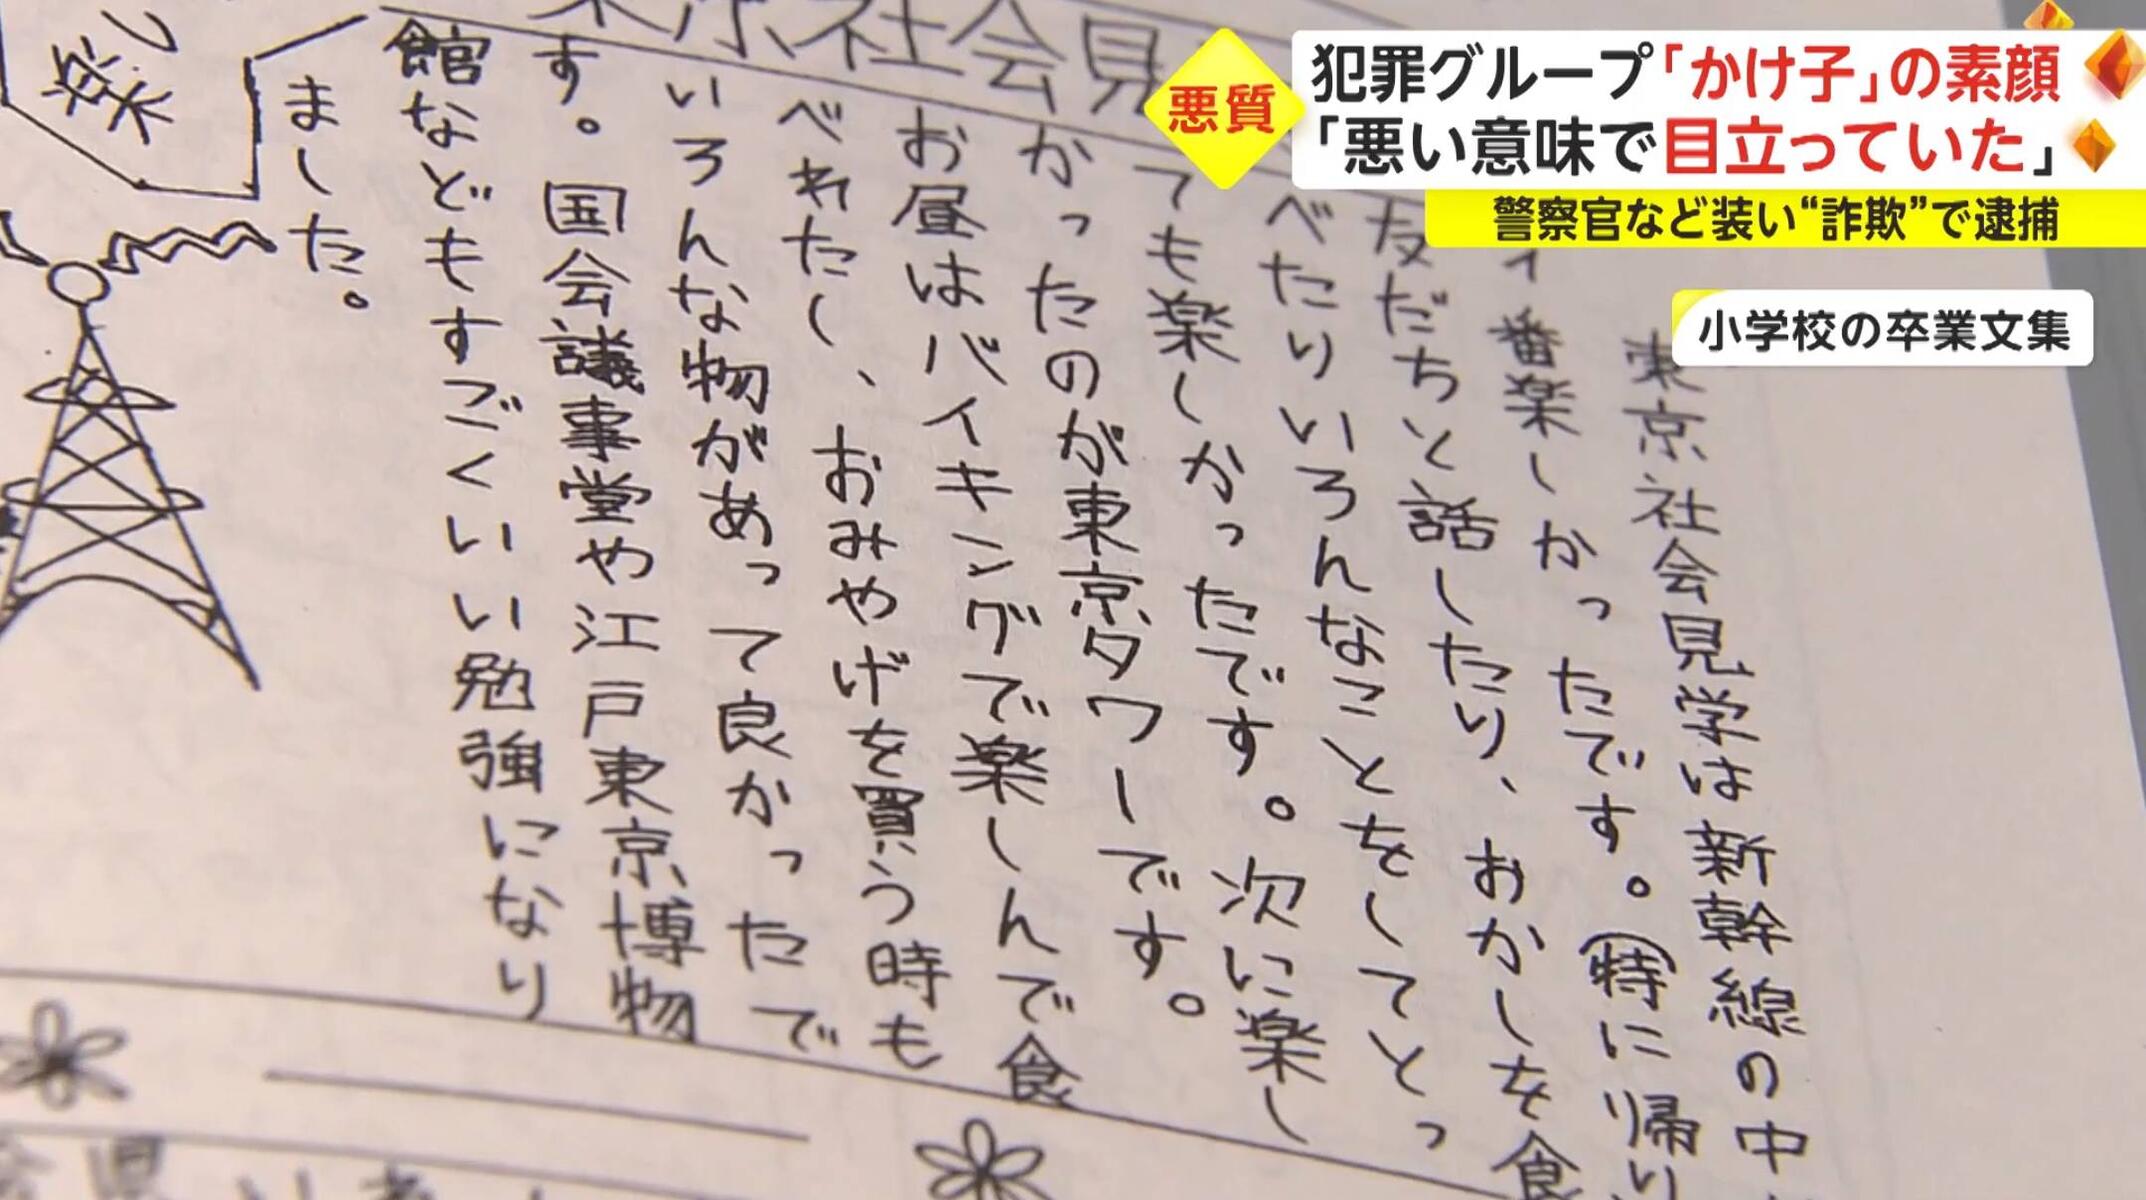 悪質
犯罪グループ「かけ子」の素顔
「悪い意味で目立っていた」
警察官など装い“詐欺”で逮捕
小学校の卒業文集
京社会見
東京社会見学は新幹線の中
番楽しかったです。(特に帰り
友だちと話したり、おかしを食
べたりいろんなことをしてとっ
ても楽しかったです。次に楽し
かったのが東京タワーです。
お昼はバイキングで楽しんで食
べれたし、おみやげを買う時も
いろんな物があって良かったで
す。国会議事堂や江戸東京博物
館などもすごくいい勉強になり
ました。